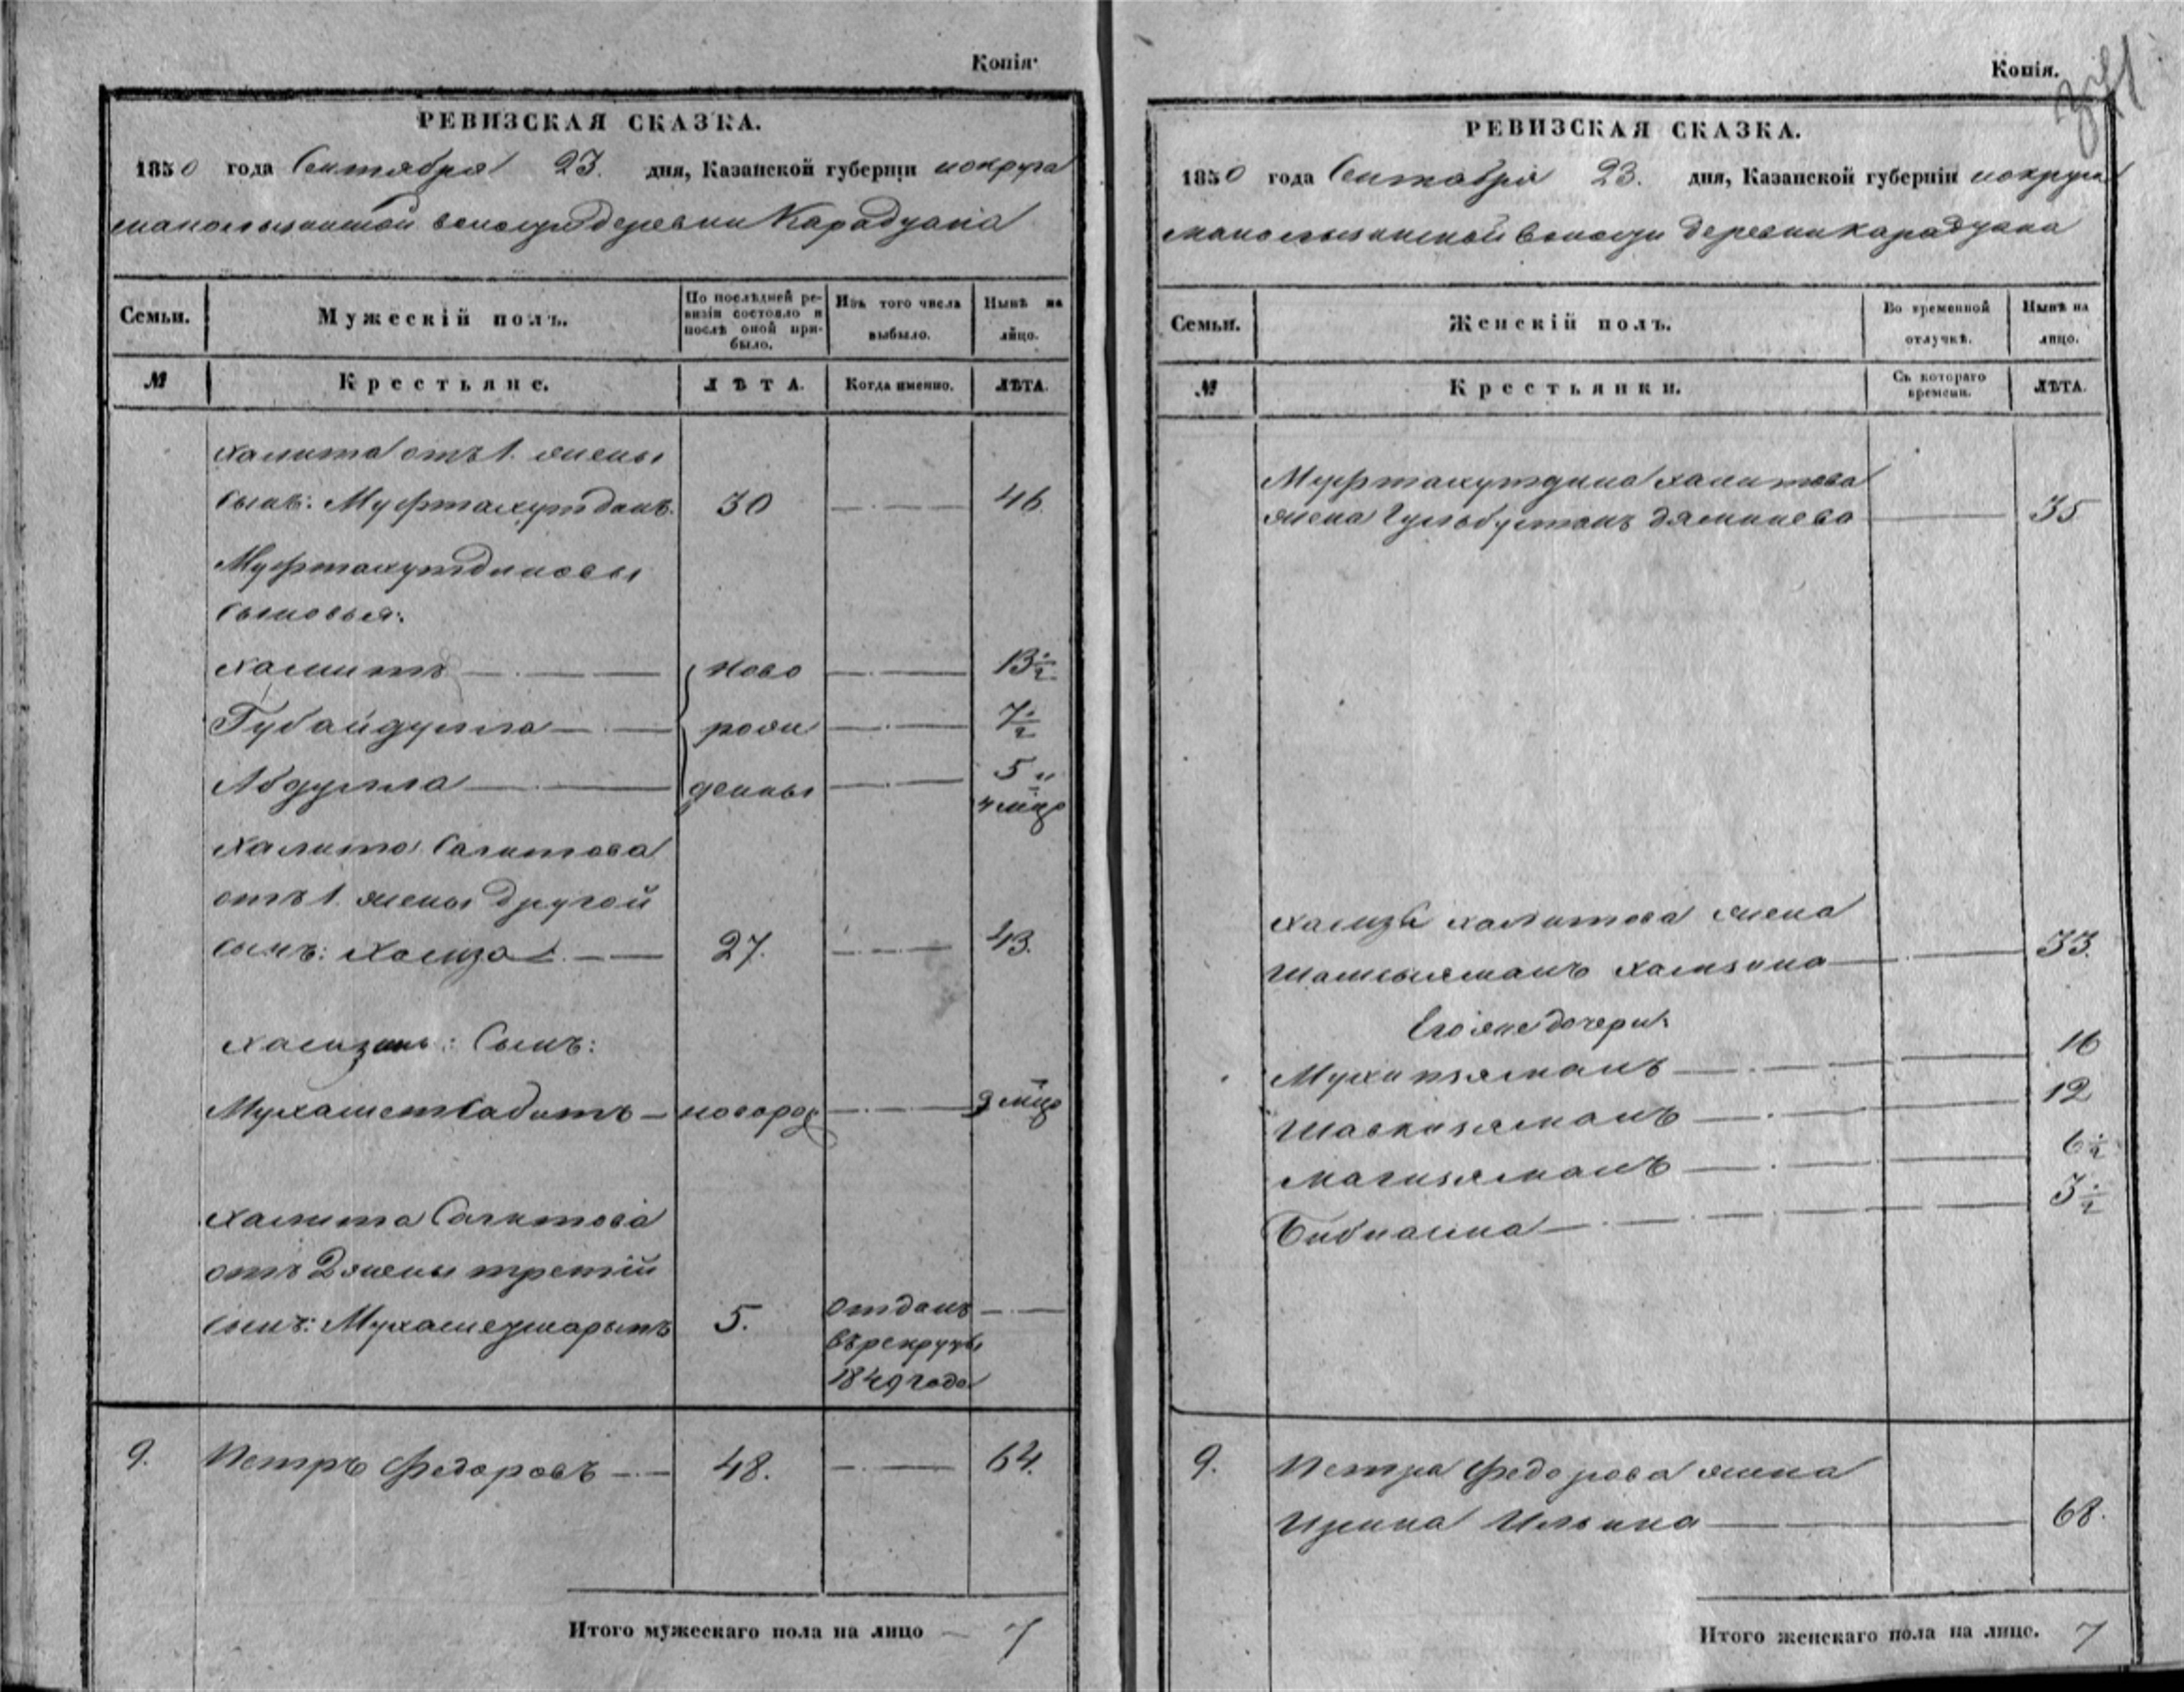 Копія.
РЕВИЗСКАЯ СКАЗКА.
1850 года Сентября 23. дня, Казанской губерніи и округа
волости деревни Карадуана
Семьи.
Мужескій полъ.
По послѣдней ревизіи состояло и послѣ оной прибыло.
Изъ того числа выбыло.
Нынѣ на лицо.
№
Крестьяне.
ЛѢТА.
Когда именно.
ЛѢТА.
Халита отъ 1. жены
сынъ: Муфтахутдинъ. 30 46.
Муфтахутдиновы
сыновья:
Хамитъ ново 13½
Губайдулла рож 7½
Абдулла денны 5 и 4 мцо
Халита Сагитова
отъ 1. жены другой
сынъ: Хамза 27. 43.
Хамзинъ: Сынъ:
Мухаметсабитъ новорож 9 мцо
Халита Сагитова
отъ 2 жены третій
сынъ: 5. отданъ
въ рекруты
1849 года
9. Петръ Федоровъ 48. 64.
Итого мужескаго пола на лицо 7
Копія.
РЕВИЗСКАЯ СКАЗКА.
1850 года Сентября 23. дня, Казанской губерніи и округа
волости деревни Карадуана
Семьи.
Женскій полъ.
Во временной отлучкѣ.
Нынѣ на лицо.
№
Крестьянки.
Съ котораго времени.
ЛѢТА.
Муфтахутдина Халитова
жена Гульбустанъ 35
Хамзы Халитова жена
Шамсыяманъ Хамзина 33.
Его же дочери:
16
12
Магизяманъ 6½
Бибнаина 3½
9. Петра Федорова жена
Ирина Ильина 68.
Итого женскаго пола на лицо. 7